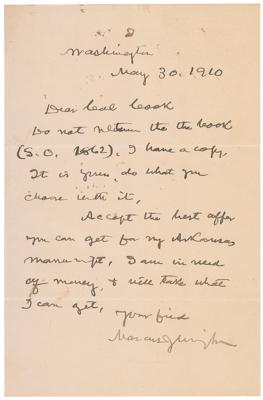 Washington
May 30. 1910
Dear Col Cook
Do not return the the book
(S.O. 1862). I have a copy.
It is yours, do what you
choose with it,
Accept the best offer
you can get for my Arkansas
manuscript, I am in need
of money, & will take what
I can get,
your fried
Marcus J. Wright